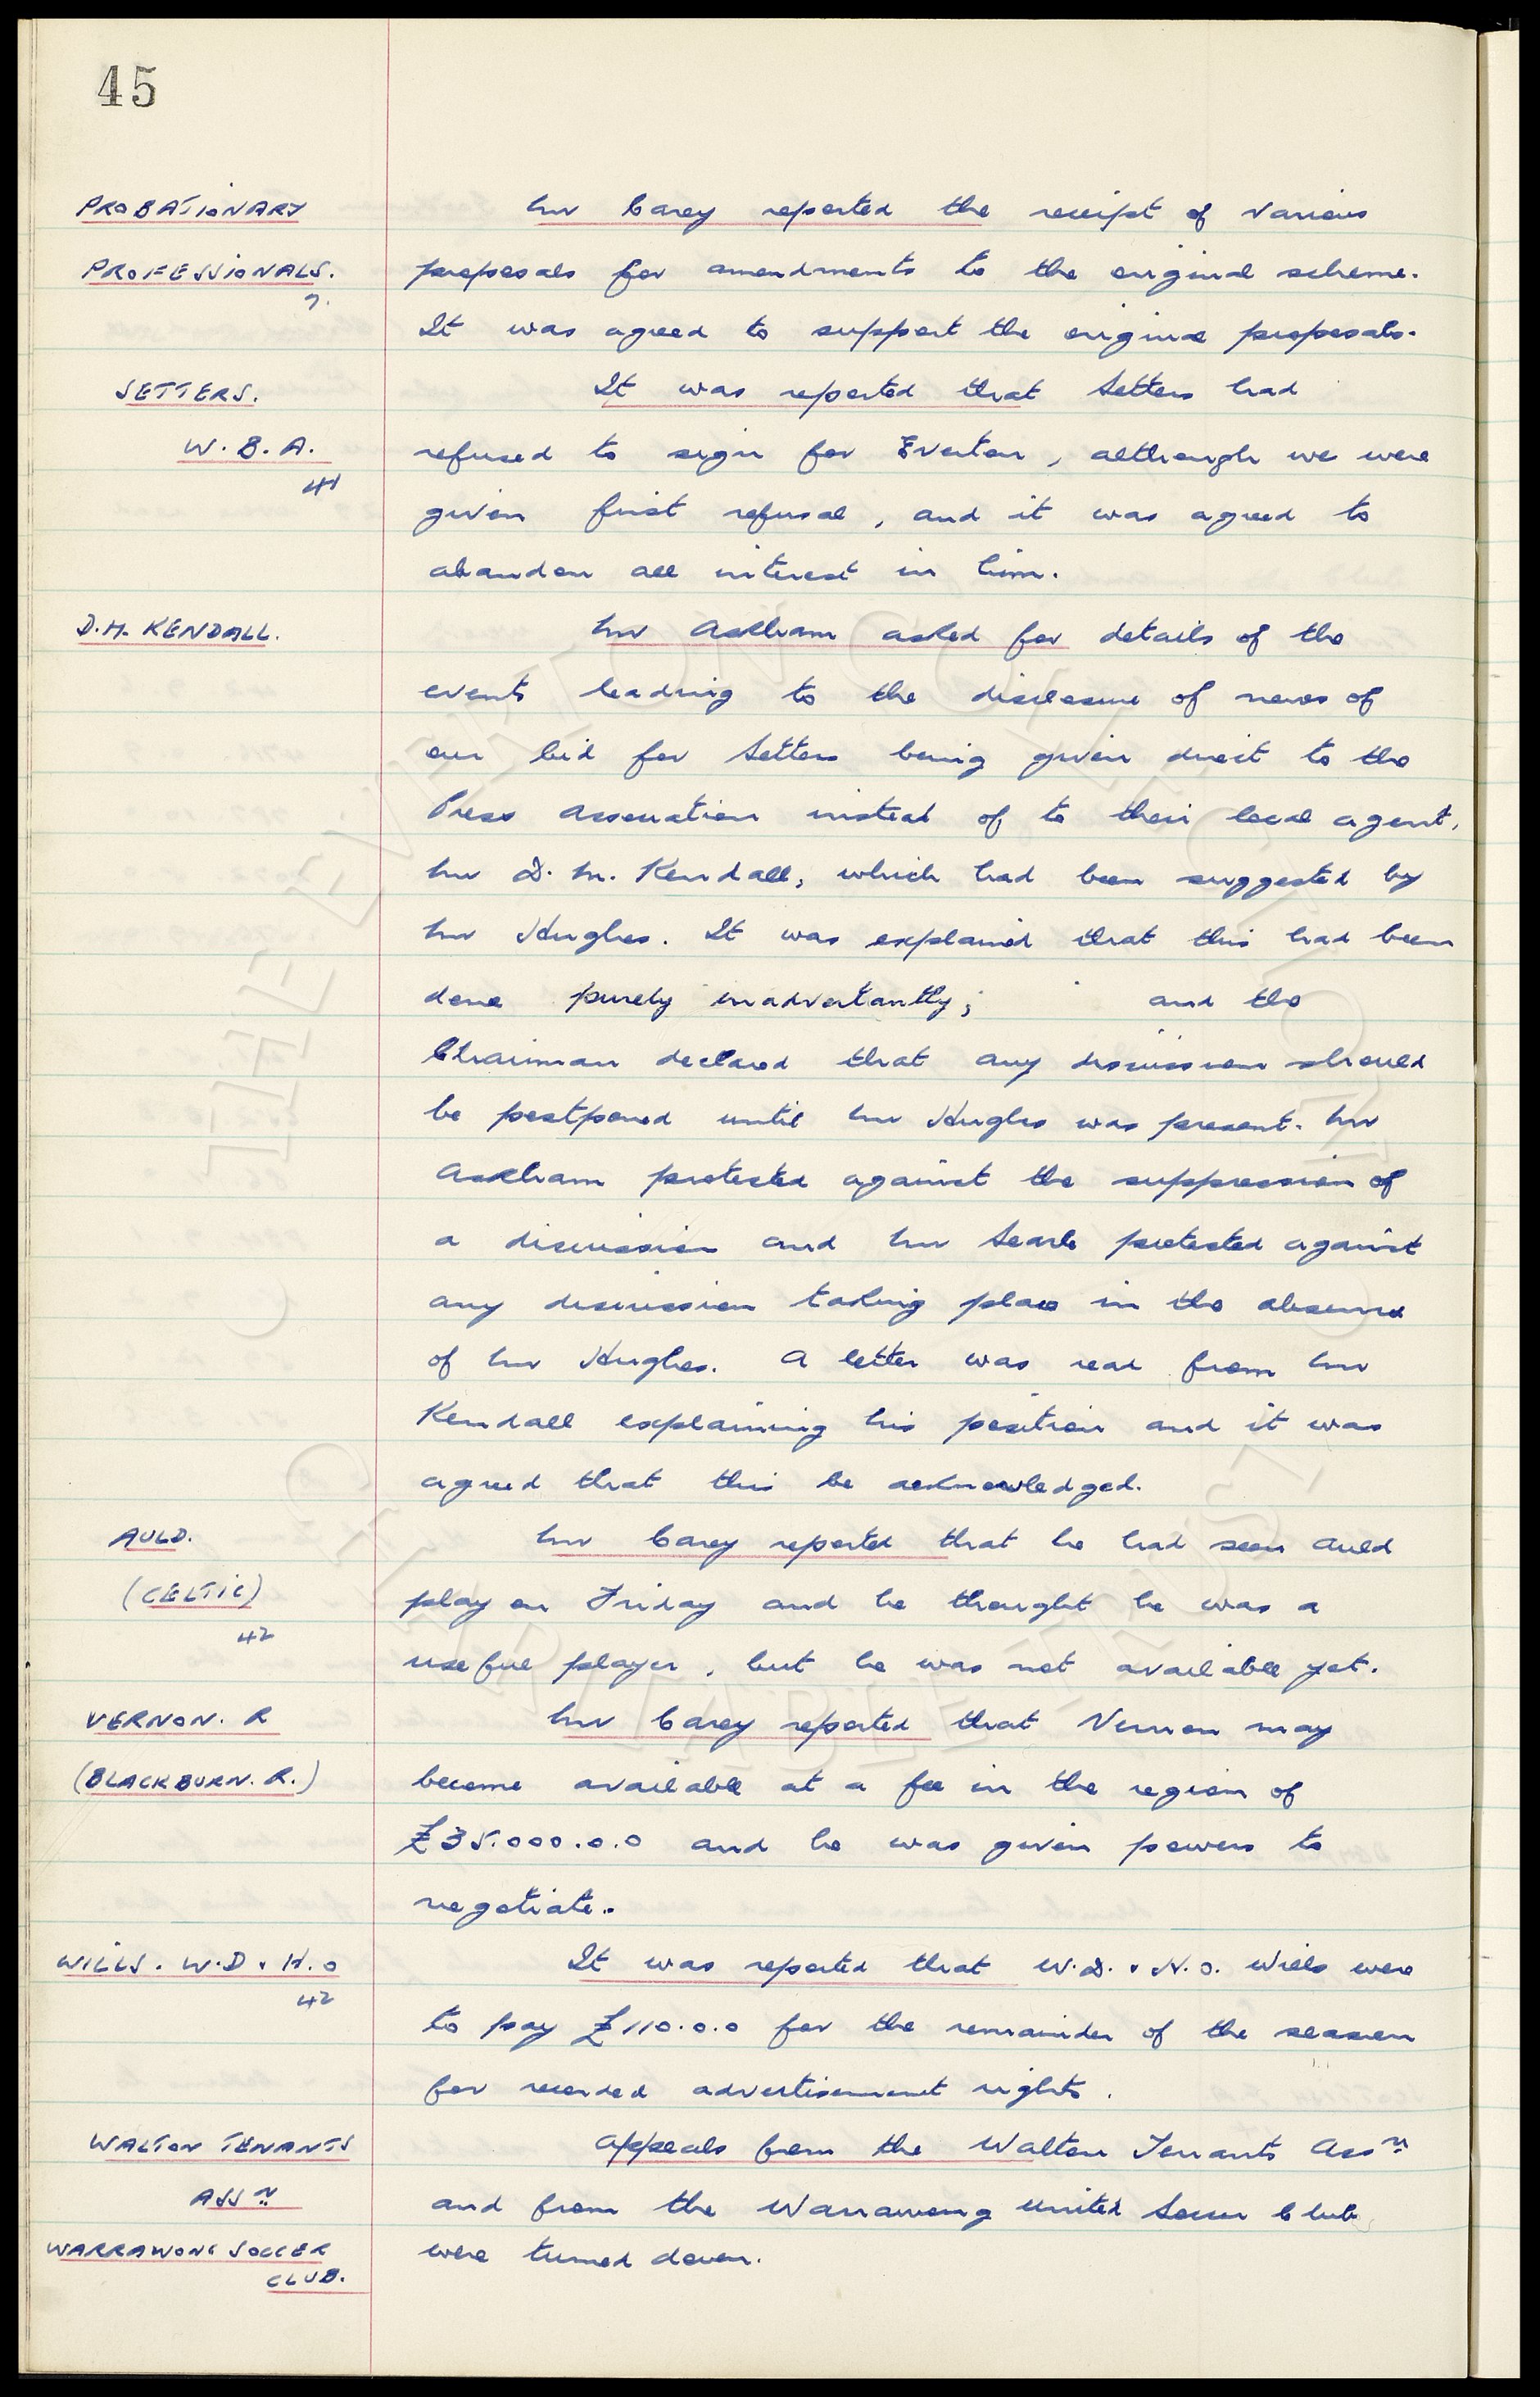 45
PROBATIONARY Mr Carey reported the receipt of various
PROFESSIONALS. proposals for amendments to the original scheme.
7.
It was agreed to support the original proposals.
SETTERS. It was reported that Setters had
W.B.A. refused to sign for Everton, although we were
41
given first refusal, and it was agreed to
abandon all interest in him.
D.M. KENDALL. Mr Askham asked for details of the
events leading to the disclosure of news of
our bid for Setters being given direct to the
Press Association instead of to their local agent,
Mr D. M. Kendall, which had been suggested by
Mr Hughes. It was explained that this had been
done purely inadvertantly; and the
Chairman declared that any discussion should
be postponed until Mr Hughes was present. Mr
Askham protested against the suppression of
a discussion and Mr Searle protested against
any discussion taking place in the absence
of Mr Hughes. A letter was read from Mr
Kendall explaining his position and it was
agreed that this be acknowledged.
AULD. Mr Carey reported that he had seen Auld
(CELTIC) play on Friday and he thought he was a
42
useful player, but he was not available yet.
VERNON. R Mr Carey reported that Vernon may
(BLACKBURN. R.) become available at a fee in the region of
£35.000.0.0 and he was given powers to
negotiate.
WILLS. W.D & H.O It was reported that W.D. & H.O. Wills were
42
to pay £110.0.0 for the remainder of the season
for recorded advertisement rights.
WALTON TENANTS Appeals from the Walton Tenants Assn
ASSN and from the Warrawong United Soccer Club
WARRAWONG SOCCER were turned down.
CLUB.